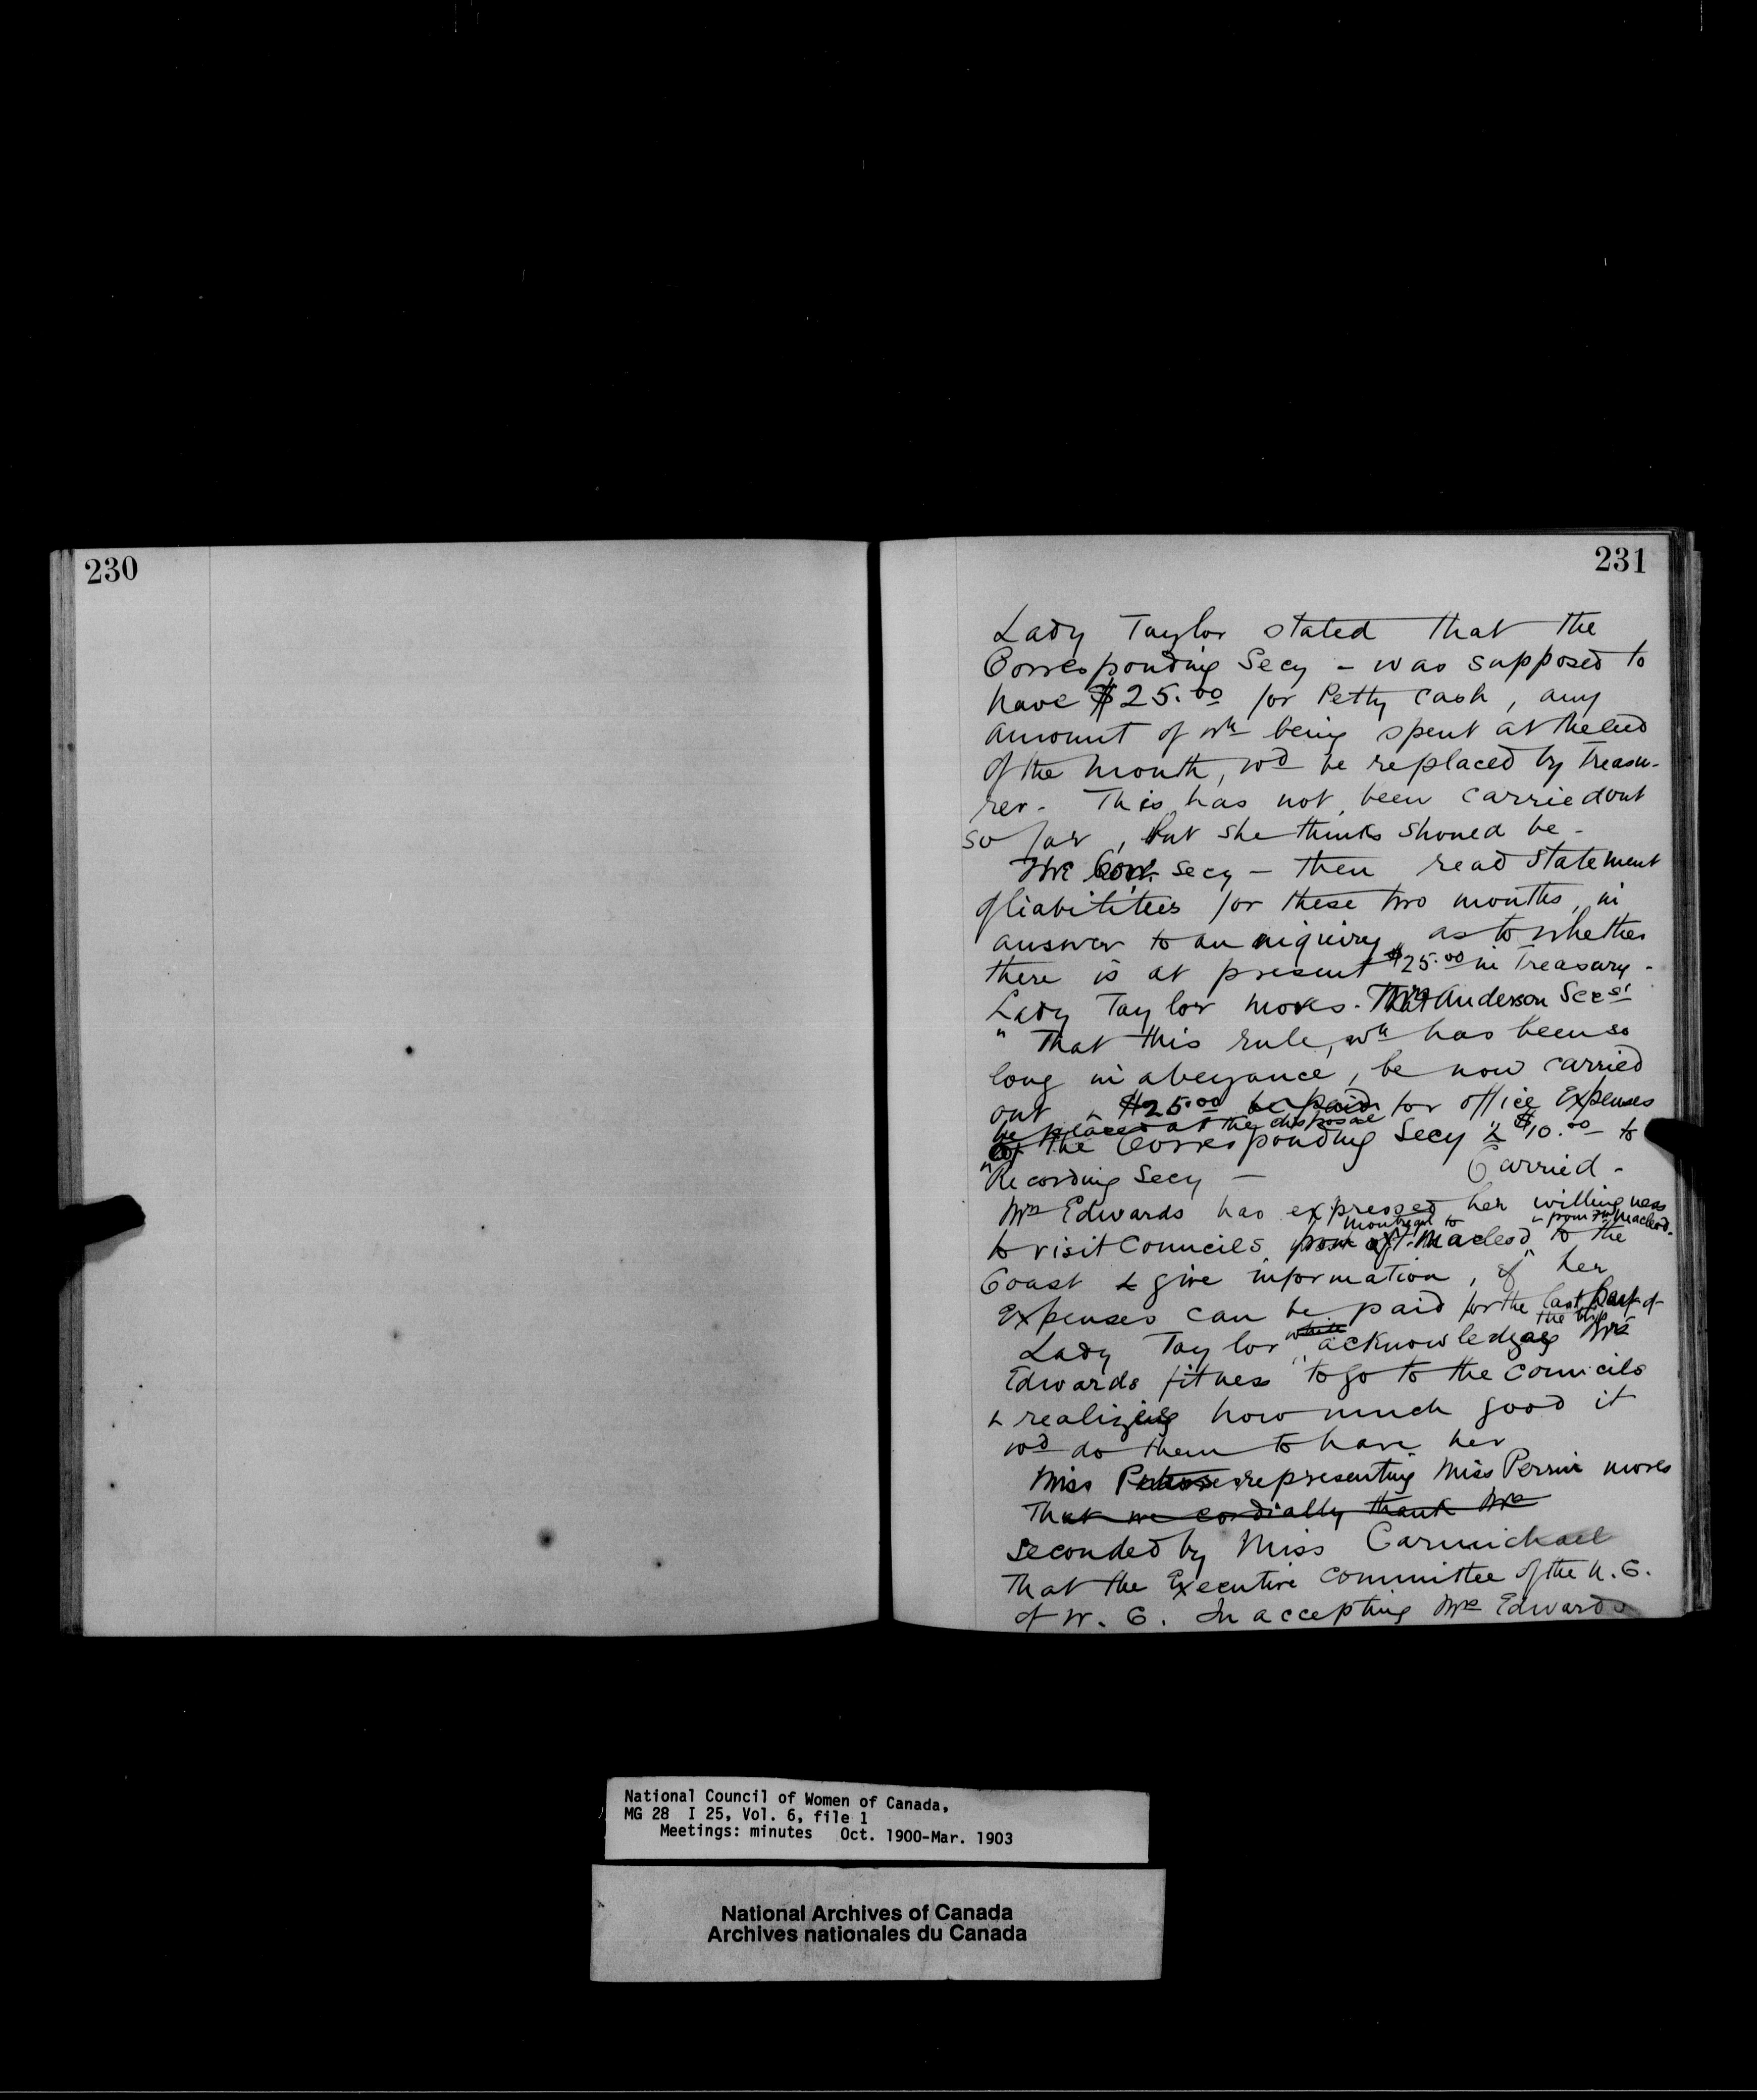 230
231
Lady Taylor stated that the
Corresponding Secy - was supposed to
have $25.00 for Petty cash, any
amount of wh being spent at the end
of the month, wd be replaced by Treasu-
rer. This has not been carried out
so far, but she thinks should be -
The Corr. Secy - then read statement
of liabilities for these two months, in
answer to an inquiry as to whether
there is at present $25.00 in Treasury -
Lady Taylor moves. Mrs Anderson Secs'
"That this rule, wh has been so
long in abeyance, be now carried
out & $25.00 be paid for office Expenses
be placed at the disposal
of the Corresponding Secy & $10.00 to
"Recording Secy - Carried -
Mrs Edwards has expressed her willingness
Montreal to & from Ft Macleod
to visit Councils from Ft. Macleod to the
Coast & give information, if her
Expenses can be paid for the last Part of
the trip
while
Lady Taylor acknowledges Mrs
Edwards fitness to go to the Councils
& realizing how much good it
wd do them to have her
Miss representing Miss Perrin moves
That we cordially thank Mrs
Seconded by Miss Carmichael
That the Executive Committee of the N. C.
of W. C. In accepting Mrs Edwards
National Council of Women of Canada,
MG 28 I 25, Vol. 6, file 1
Meetings: minutes Oct. 1900-Mar. 1903
National Archives of Canada
Archives nationales du Canada